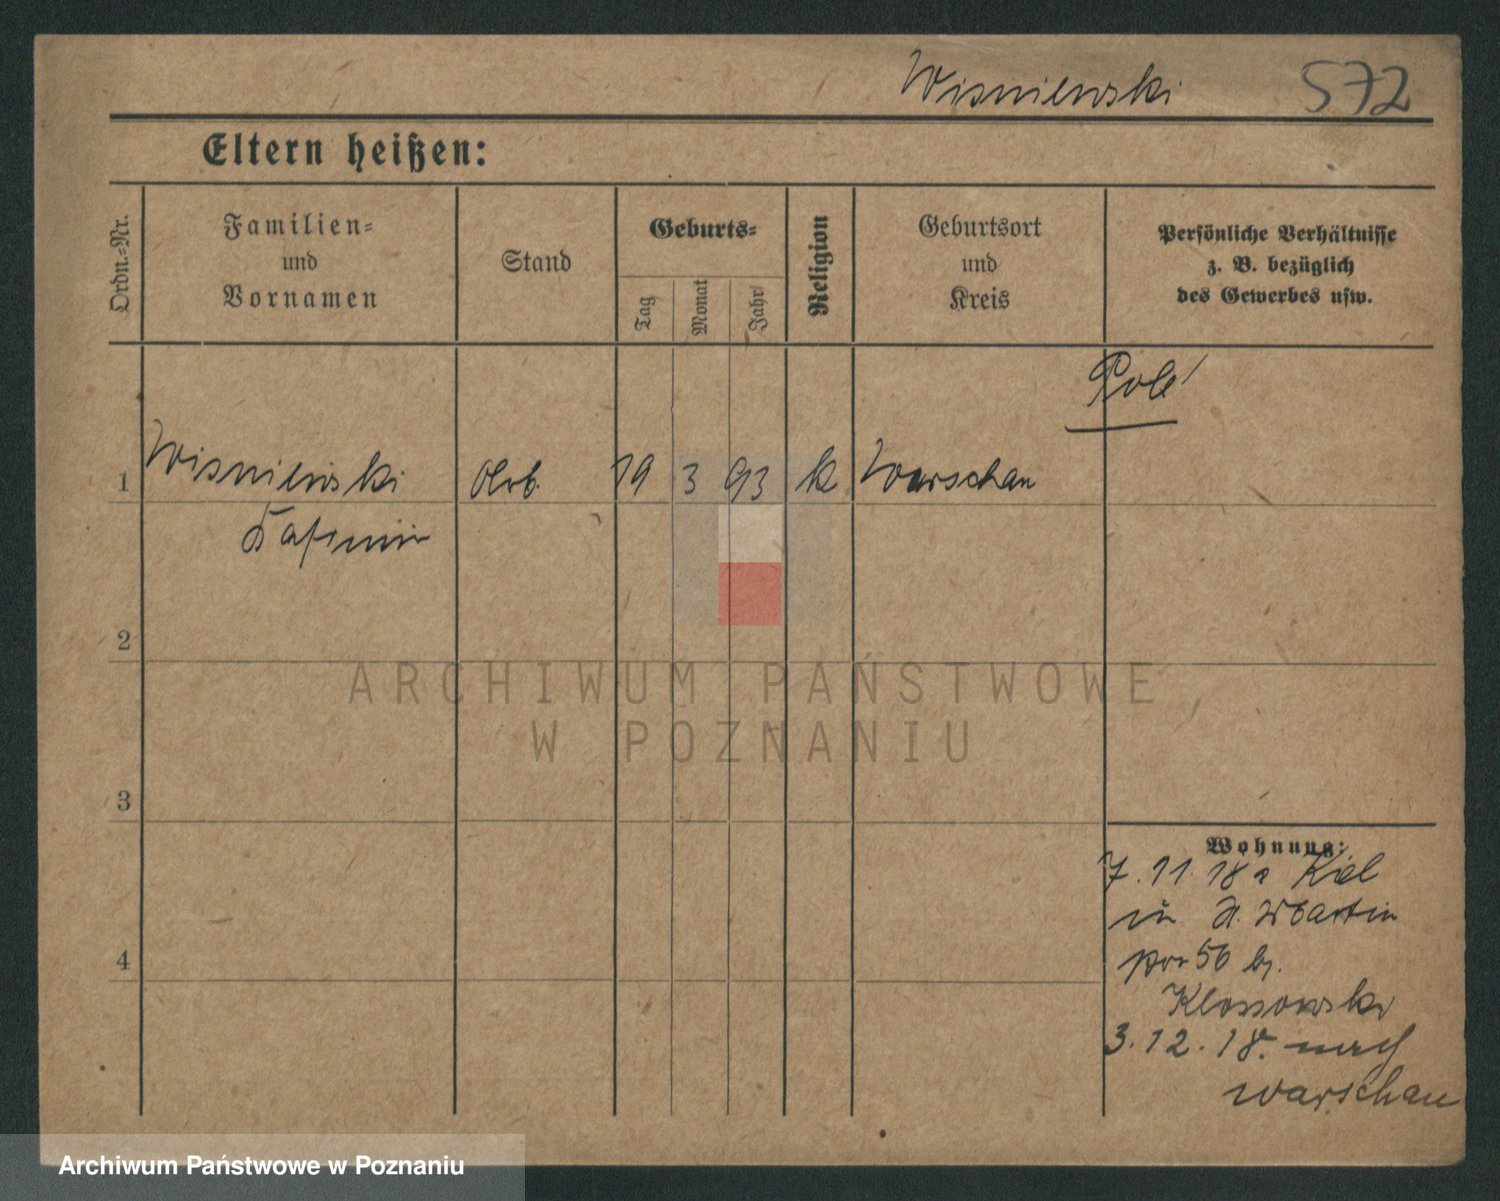 Wisniewski 572
Eltern heißen:
Ordn.-Nr.
Familien-
und
Vornamen
Stand
Geburts-
Tag
Monat
Jahr
Religion
Geburtsort
und
Kreis
Persönliche Verhältnisse
z. B. bezüglich
des Gewerbes usw.
Pole
1 Wisniewski 19 3 93 k Warschau
Kasimir
2
3
4
Wohnung:
7. 11 18 a Kiel
in St. Martin
56 b.
Klossowski
3. 12. 18. nach
Warschau
ARCHIWUM PAŃSTWOWE
W POZNANIU
Archiwum Państwowe w Poznaniu